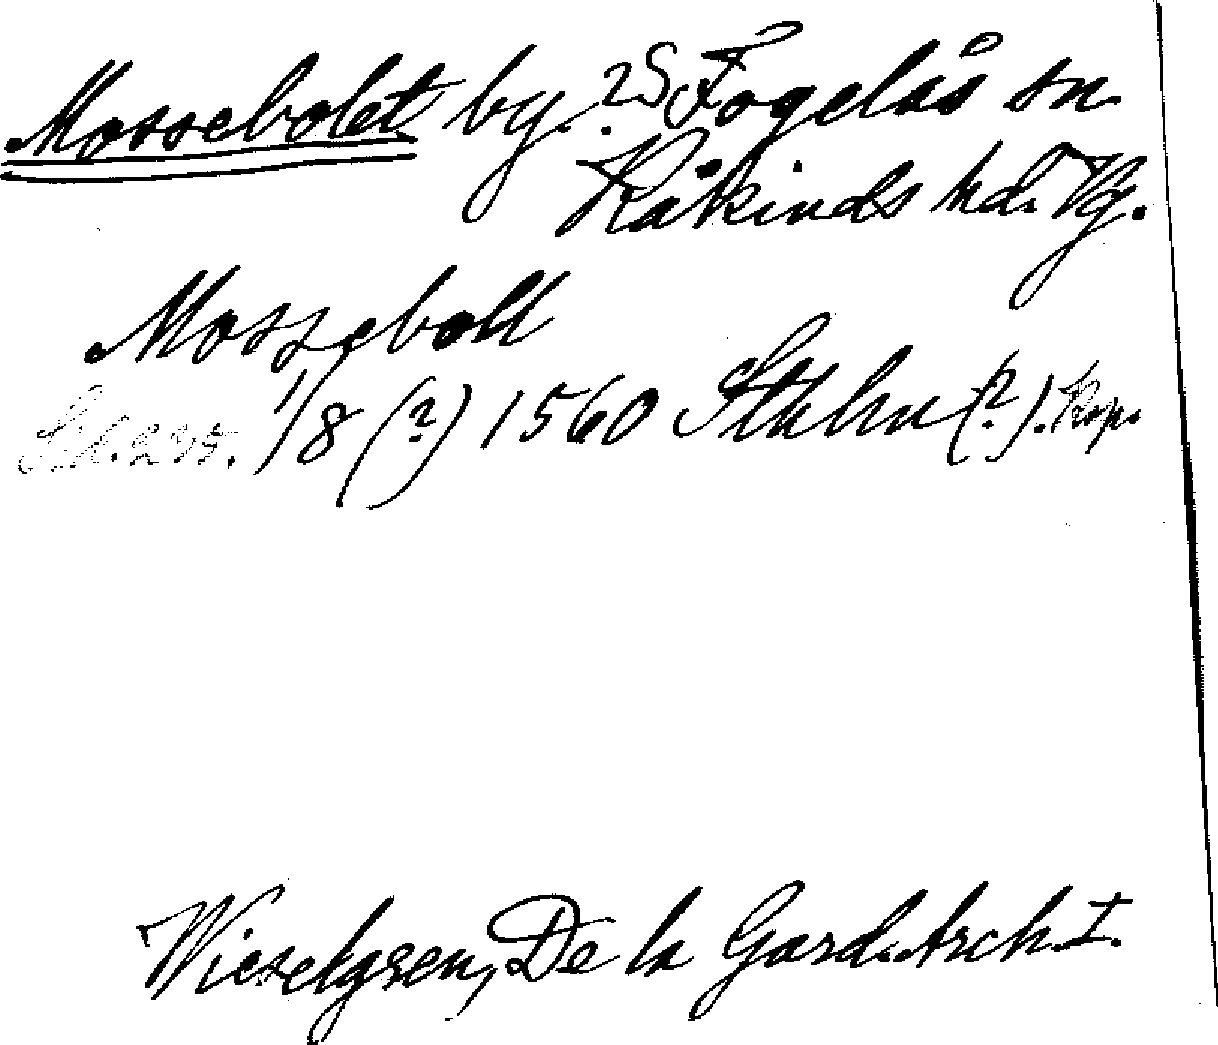 Mossebolet by. ? S Fogelås sn.
Kåkinds hd. Vg.
Mosseboll
Sid. 295. 1/8 (?) 1560 Sthlm (?). Kop.
Wieselgren, De la Gard. Arch. I.